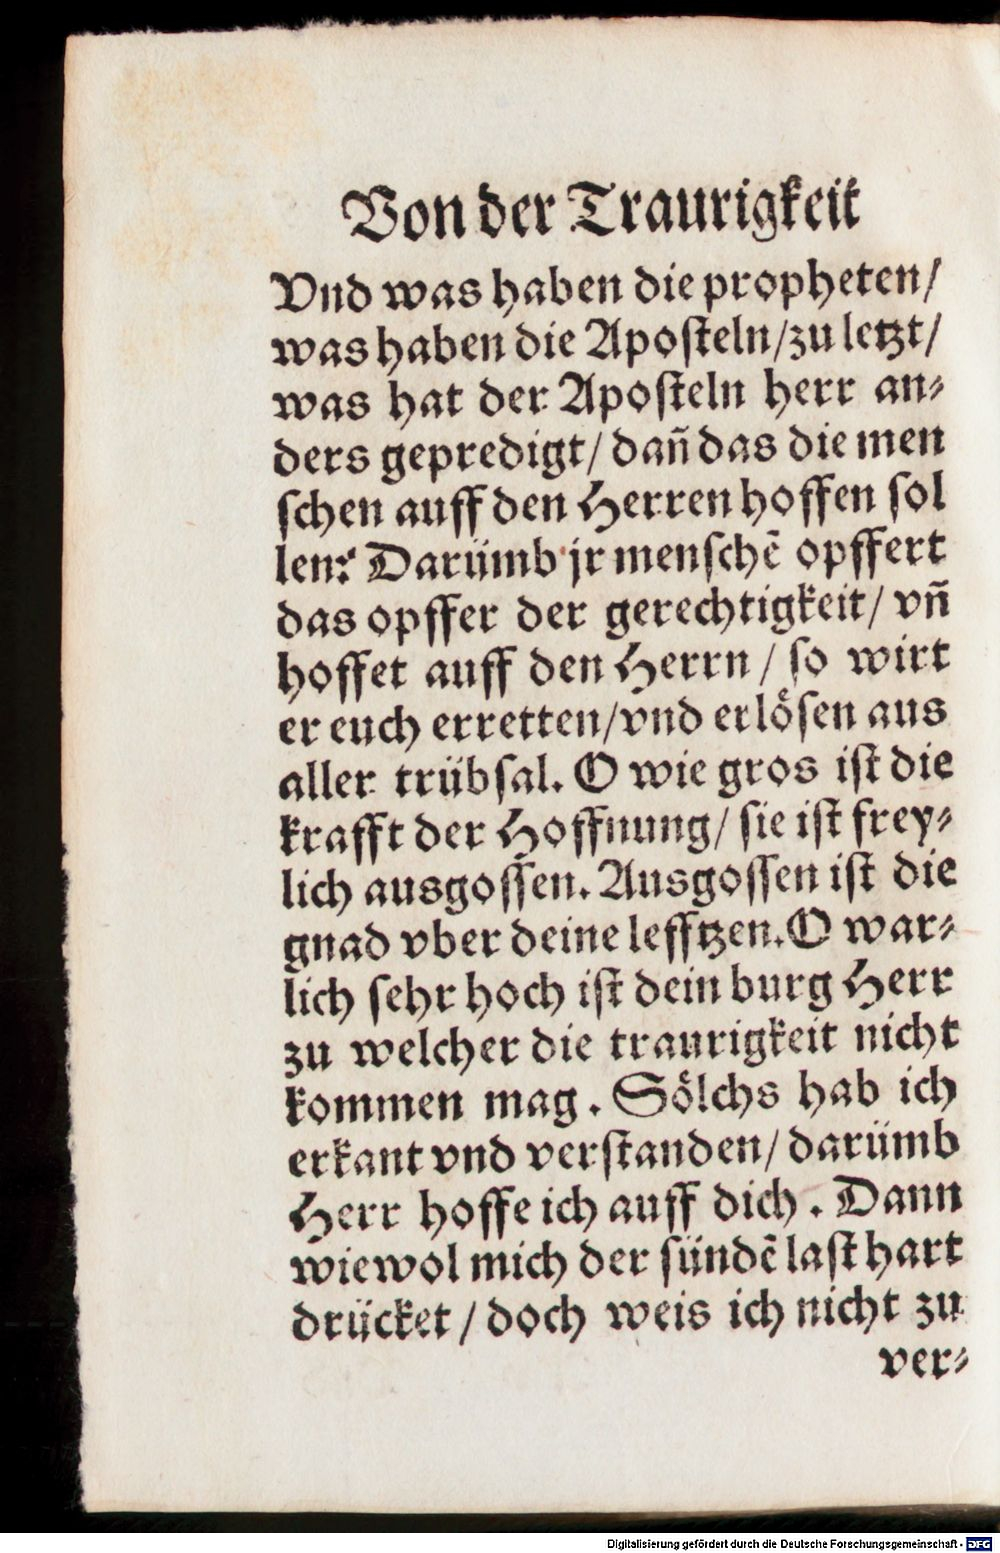 Von der Traurigkeit
Vnd was haben die propheten/
was haben die Apoſteln/zu letzt/
was hat der Apoſteln herr an⸗
ders gepredigt/ dañ das die men
ſchen auff den Herren hoffen ſol
len? Darümb jr menſchẽ opffert
das opffer der gerechtigkeit/ vñ
hoffet auff den Herrn / ſo wirt
er euch erretten/vnd erlöſen aus
aller trübſal. O wie gros iſt die
krafft der Hoffnung/ ſie iſt frey⸗
lich ausgoſſen. Ausgoſſen iſt die
gnad vber deine lefftzen. O war⸗
lich ſehr hoch iſt dein burg Herr
zu welcher die traurigkeit nicht
kommen mag. Sölchs hab ich
erkant vnd verſtanden/ darümb
Herr hoffe ich auff dich. Dann
wiewol mich der ſündẽ laſt hart
drücket / doch weis ich nicht zu
ver⸗
Digitalisierung gefördert durch die Deutsche Forschungsgemeinschaft - DFG